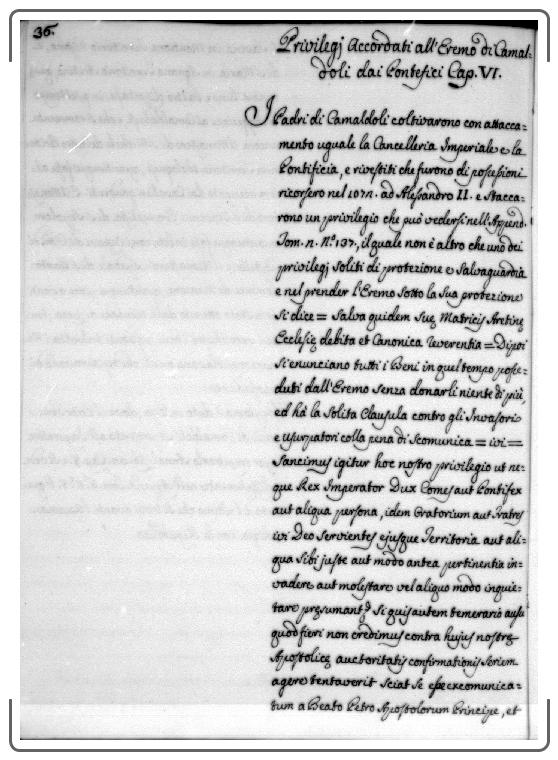 36.
Privilegj Accordati all'Eremo di Camal=
doli dai Pontefici Cap. VI.
I Padri di Camaldoli coltivarono con attacca=
mento uguale la Cancelleria Imperiale e la
Pontificia, e rivestiti che furono di possessioni
ricorsero nel 107n. ad Alessandro II. e Stacca=
rono un privilegio che può vedersi nell'Append.
Tom. n. N.º 137., il quale non è altro che uno dei
privilegj soliti di protezione e Salvaguardia
e nel prender l'Eremo Sotto la Sua protezione
Si dice = Salva quidem Suę Matricis Aretinę
Ecclesię debita et Canonica Reverentia = Di poi
Si enunciano tutti i Beni in quel tempo posse=
duti dall'Eremo Senza donarli niente di più,
ed hà la Solita Clausula contro gli Invasori
e usurpatori colla pena di Scomunica = ivi =
Sancimus igitur hoc nostro privilegio ut ne=
que Rex Imperator Dux Comes aut Pontifex
aut aliqua persona, idem Oratorium aut Fratres
ivi Deo Servientes ejusque Territoria aut ali=
qua Sibi juste aut modo antea pertinentia in=
vadere aut molestare vel aliquo modo inquie=
tare pręsumant Si quis autem temerario ausu
quod fieri non credimus contra hujus nostrę
Apostolicę auctoritatis confirmationis Seriem
agere tentaverit Sciat Se esse excomunica=
tum a Beato Petro Apostolorum Principe, et